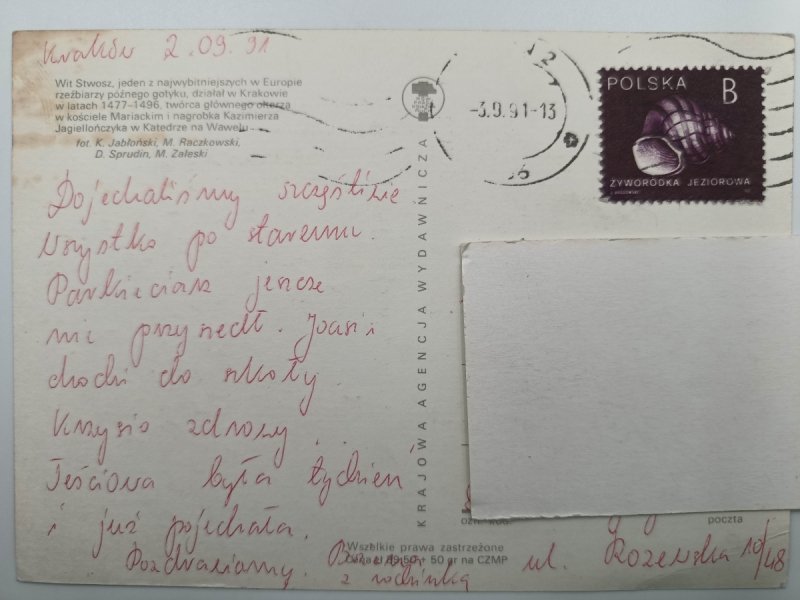 Kraków 2.09.91
Wit Stwosz, jeden z najwybitniejszych w Europie
rzeźbiarzy późnego gotyku, działał w Krakowie
w latach 1477–1496, twórca głównego ołtarza
w kościele Mariackim i nagrobka Kazimierza
Jagiellończyka w Katedrze na Wawelu
fot. K. Jabłoński, M. Raczkowski,
D. Sprudin, M. Zaleski
Dojechaliśmy szczęśliwie
Wszystko po staremu.
Parkieciarz jeszcze
nie przyszedł. Joasia
chodzi do szkoły
Krzysio zdrowy
Teściowa była tydzień
i już pojechała.
Pozdrawiamy.
z rodzinką
KRAJOWA AGENCJA WYDAWNICZA
Wszelkie prawa zastrzeżone
50 gr na CZMP
-3.9.91-13
POLSKA B
ŻYWORÓDKA JEZIOROWA
poczta
ul. 10/48